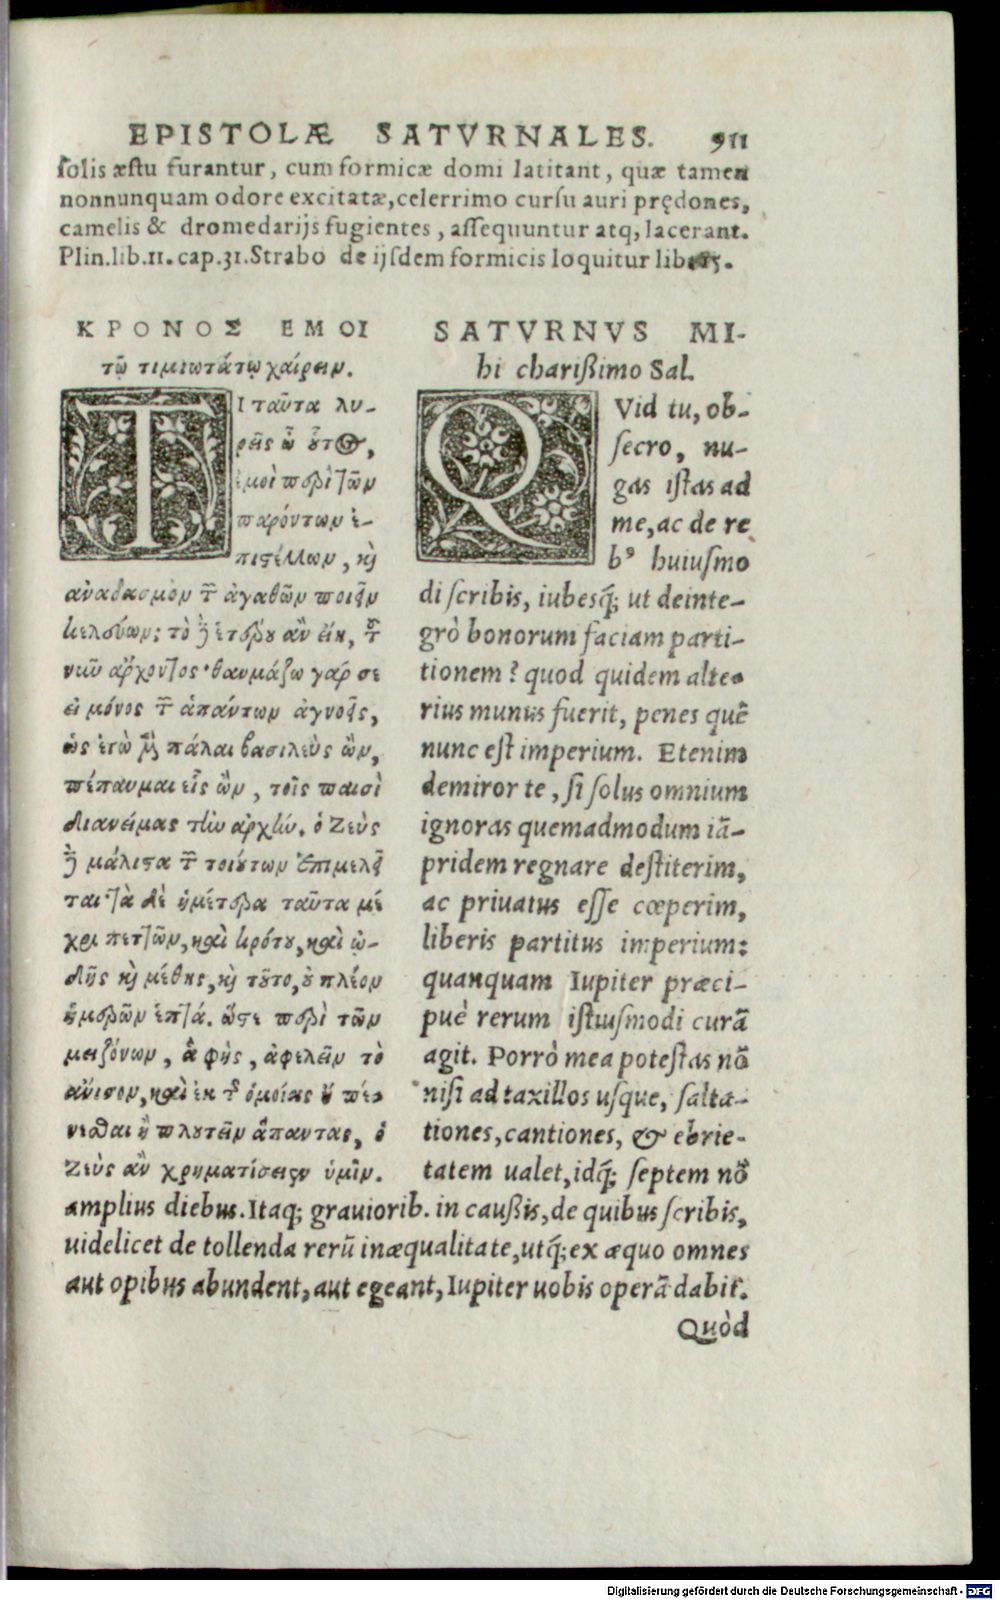 EPISTOLÆ SATVRNALES. 911
ſolis æſtu furantur, cum formicæ domi latitant, quæ tamen
nonnunquam odore excitatæ, celerrimo curſu auri prędones,
camelis & dromedarijs fugientes, aſſequuntur atq; lacerant.
Plin.lib.11.cap.31.Strabo de ijſdem formicis loquitur lib.15.
ΚΡΟΝΟΣ ΕΜΟΙ
τῷ τιμιωτάτῳ χαίρειν.
ΤΙ ταῦτα λυ-
ρεῖς ὦ οὗτος,
ἐμοὶ περὶ τῶν
παρόντων ἐ-
πιστέλλων, καὶ
ἀναδασμὸν τῶν ἀγαθῶν ποιεῖν
κελεύων; τὸ δὲ ἑτέρου ἂν εἴη, τοῦ
νῦν ἄρχοντος· θαυμάζω γάρ σε
εἰ μόνος τῶν ἁπάντων ἀγνοεῖς,
ὡς ἐγὼ μὲν πάλαι βασιλεὺς ὢν,
πέπαυμαι εἷς ὢν, τοῖς παισὶ
διανείμας τὴν ἀρχήν. ὁ Ζεὺς
δὲ μάλιστα τῶν τοιούτων ἐπιμελεῖ
ται· τὰ δὲ ἡμέτερα ταῦτα μέ
χρι πεττῶν, καὶ κρότου, καὶ ᾠ-
δῆς καὶ μέθης, καὶ τοῦτο, οὐ πλέον
ἡμερῶν ἑπτά. ὥστε περὶ τῶν
μειζόνων, ἃ φῂς, ἀφελεῖν τὸ
ἄνισον, καὶ ἐκ τῆς ὁμοίας ἢ πέ-
νεσθαι ἢ πλουτεῖν ἅπαντας, ὁ
Ζεὺς ἂν χρηματίσειεν ὑμῖν.
SATVRNVS MI-
hi chariſsimo Sal.
QVid tu, ob-
ſecro, nu-
gas iſtas ad
me, ac de re
b⁹ huiuſmo
di ſcribis, iubesq́; ut deinte-
grò bonorum faciam parti-
tionem? quod quidem alte-
rius munus fuerit, penes quẽ
nunc eſt imperium. Etenim
demiror te, ſi ſolus omnium
ignoras quemadmodum iã-
pridem regnare deſtiterim,
ac priuatus eſſe cœperim,
liberis partitus imperium:
quanquam Iupiter præci-
puè rerum iſtiuſmodi curã
agit. Porrò mea poteſtas nõ
niſi ad taxillos uſque, ſalta-
tiones, cantiones, & ebrie-
tatem ualet, idq́; ſeptem nõ
amplius diebus. Itaq; grauiorib. in cauſsis, de quibus ſcribis,
uidelicet de tollenda rerũ inæqualitate, utq́; ex æquo omnes
aut opibus abundent, aut egeant, Iupiter uobis operã dabit.
Quòd
Digitalisierung gefördert durch die Deutsche Forschungsgemeinschaft - DFG